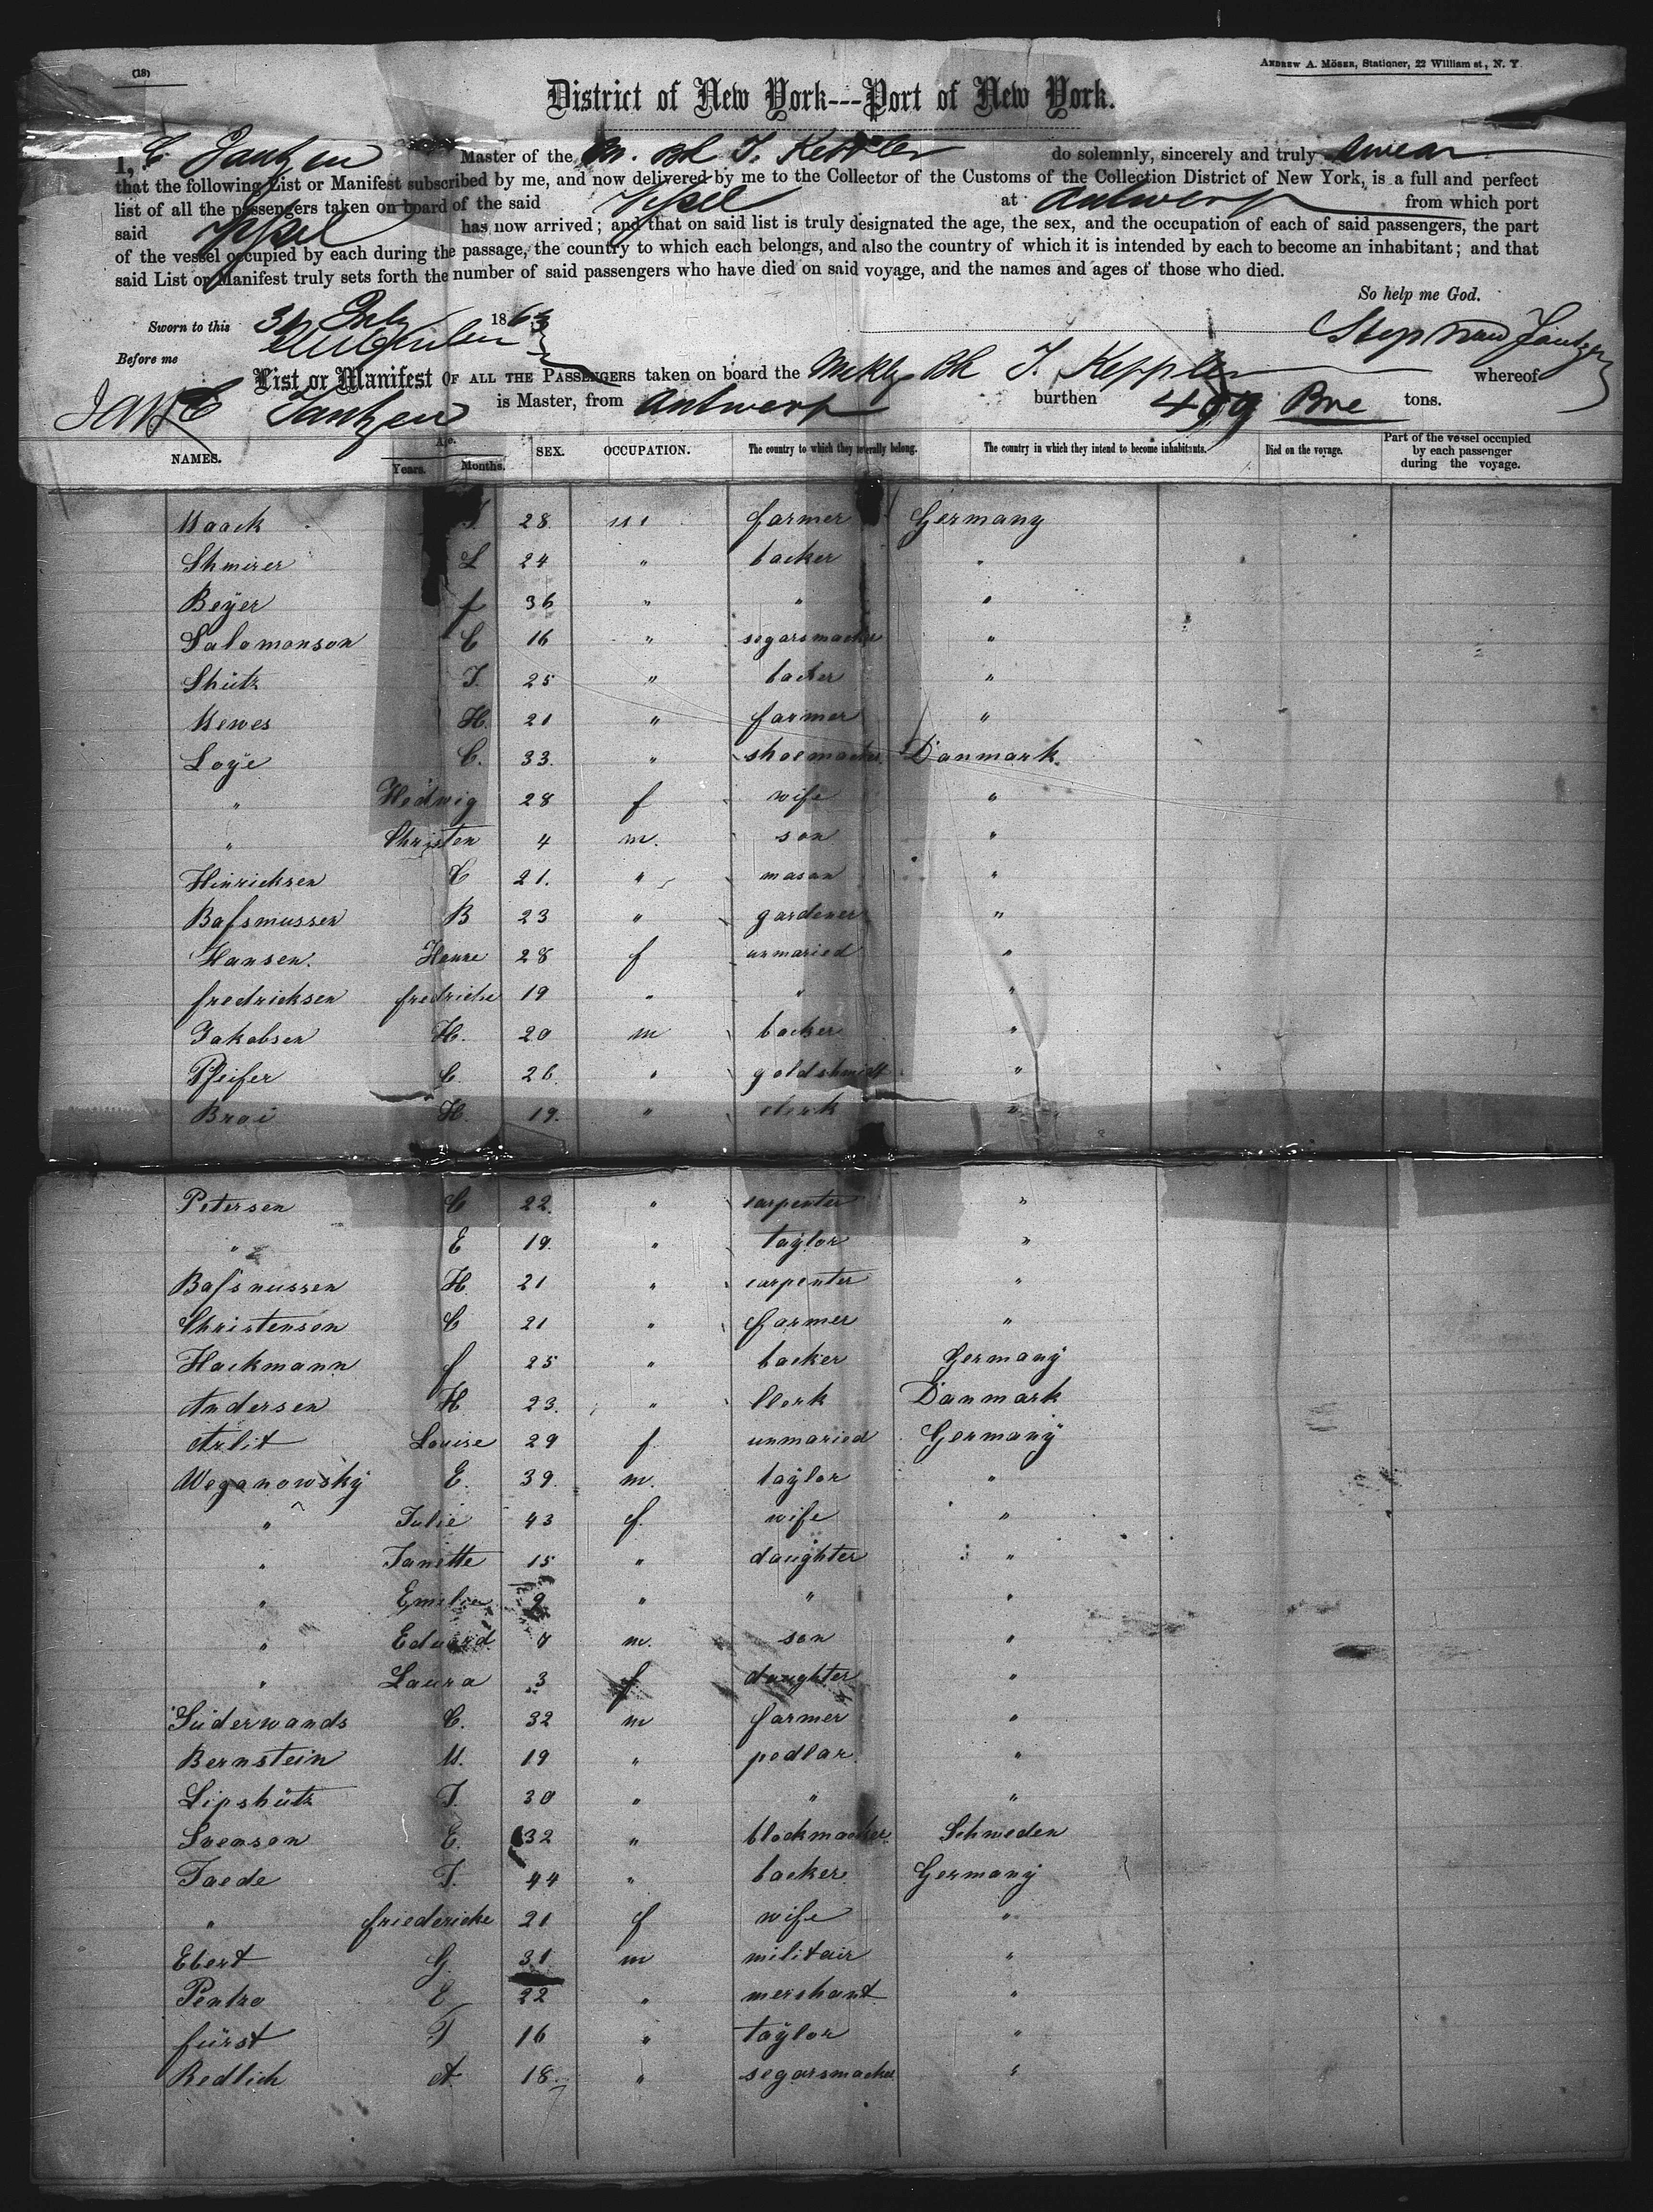 (18)
ANDREW A. MÖSER, Stationer, 22 William st., N. Y.
District of New York---Port of New York.
I, C Jantzen Master of the M. Bk J. Keppler do solemnly, sincerely and truly swear
that the following List or Manifest subscribed by me, and now delivered by me to the Collector of the Customs of the Collection District of New York, is a full and perfect
list of all the passengers taken on board of the said Vessel at Antwerp from which port
said Vessel has now arrived; and that on said list is truly designated the age, the sex, and the occupation of each of said passengers, the part
of the vessel occupied by each during the passage, the country to which each belongs, and also the country of which it is intended by each to become an inhabitant; and that
said List or Manifest truly sets forth the number of said passengers who have died on said voyage, and the names and ages of those who died.
So help me God.
Sworn to this 31 July 1863
Before me
List or Manifest OF ALL THE PASSENGERS taken on board the Mekly Bk J. Keppler whereof
C Jantzen is Master, from Antwerp burthen 409 Bre tons.
NAMES. Age. Years. Months. SEX. OCCUPATION. The country to which they severally belong. The country in which they intend to become inhabitants. Died on the voyage. Part of the vessel occupied by each passenger during the voyage.
Maack J. 28 m farmer Germany
Shmirer L 24 " backer "
Beÿer f 36 " " "
Salomonson C 16 " segarsmacker "
Shütz J. 25 " backer "
Mewes H. 21 " farmer "
Loÿe C. 33. " shoemacker Danmark.
" Hedwig 28 f wife "
" Christen 4 m. son "
Hinricksen C 21. " mason "
Bassmussen B 23 " gardener "
Hansen. Hanne 28 f unmaried "
fredricksen fredricke 19 " " "
Jakobsen H. 20 m backer "
Pfeifer C. 26. " goldshmidt "
Broi H. 19. " clerk "
Petersen C 22. " carpenter "
" E 19. " taÿlor "
Bassmussen H. 21 " carpenter "
Christenson C 21 " farmer "
Hackmann f 25 " backer Germanÿ
Andersen H. 23. " Clerk Danmark
Arlit Louise 29 f unmaried Germanÿ
Weganowskÿ E. 39. m. taÿlor "
" Julie 43 f. wife "
" Janette 15 " daughter "
" Emilie 9 " " "
" Eduard. 7 m. son "
" Laura 3 f daughter "
Süderwands C. 32 m farmer "
Bernstein M. 19 " pedlar. "
Lipshütz J. 30 " " "
Svenson E. 32 " blockmacker Schweden
Taede J. 44 " backer Germanÿ
" friedericke 21 f wife "
Ebert G. 31 m militair "
Pentzo E 22 " merchant "
fürst J 16 " taÿlor "
Redlich A. 18. " segarsmacker "